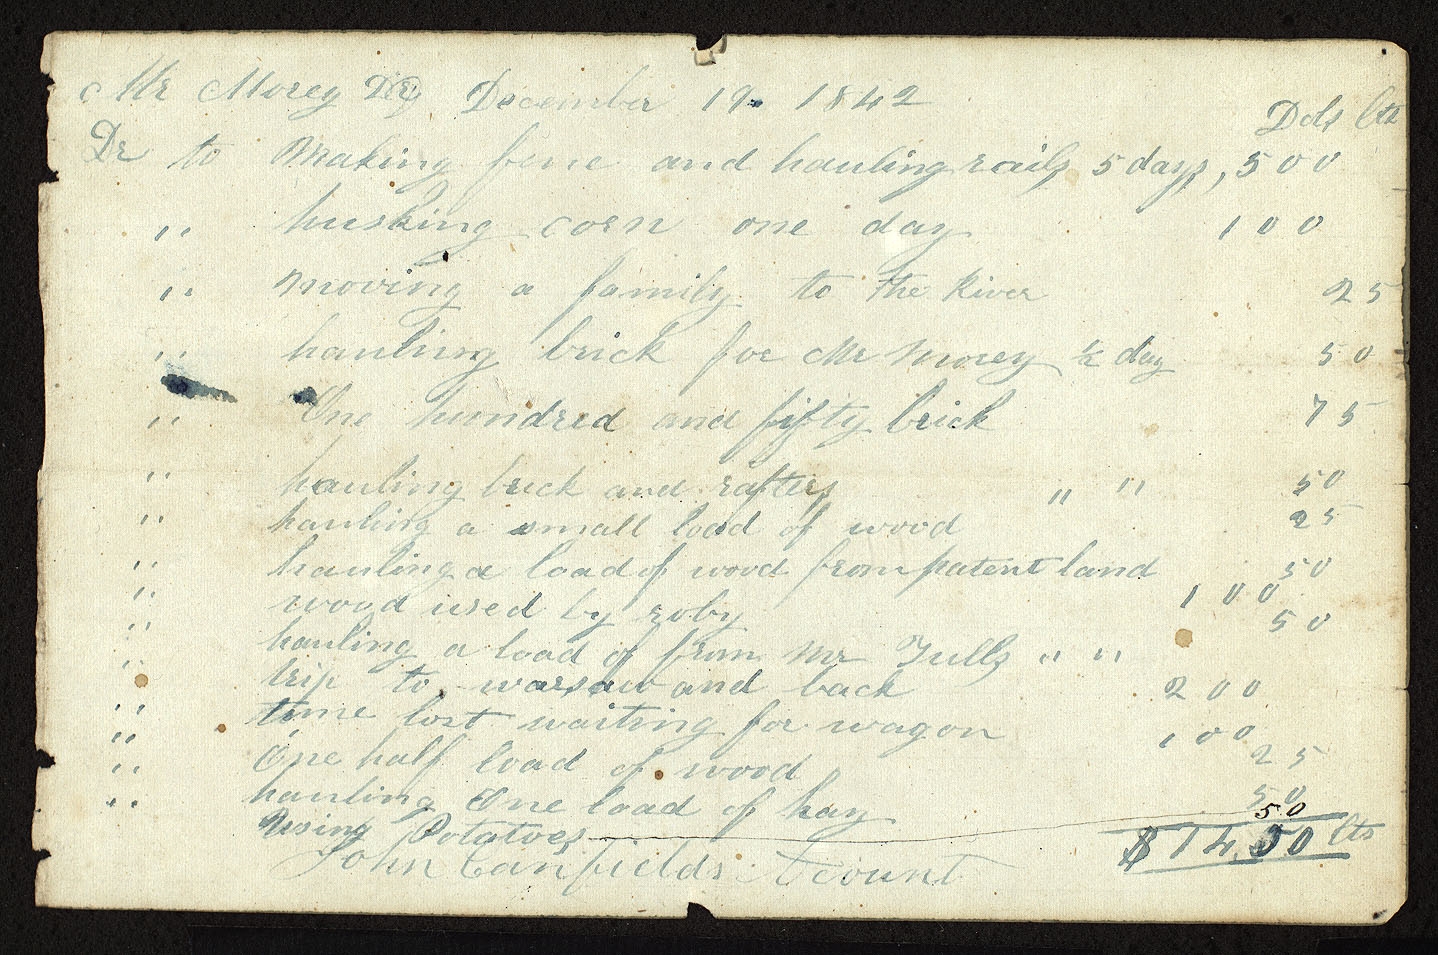 Mr Morey Dr December 19. 1842
Dols Cts
Dr to Making fence and hauling rails 5 days, 5 00
" husking corn one day 1 00
" moving a family to the River 25
" hauling brick for Mr Morey ½ day 50
" One hundred and fifty brick 75
" hauling brick and rafters " " 50
" hauling a small load of wood 25
" hauling a load of wood from patent land 50
" wood used by roby 1 00
" hauling a load of from Mr Tulls " " 50
" trip to warsaw and back 2 00
" time lost waiting for wagon 1 00
" One half load of wood 25
" hauling One load of hay 50
" Using Potatoes 50
$14.50 Cts
John Canfields Acount